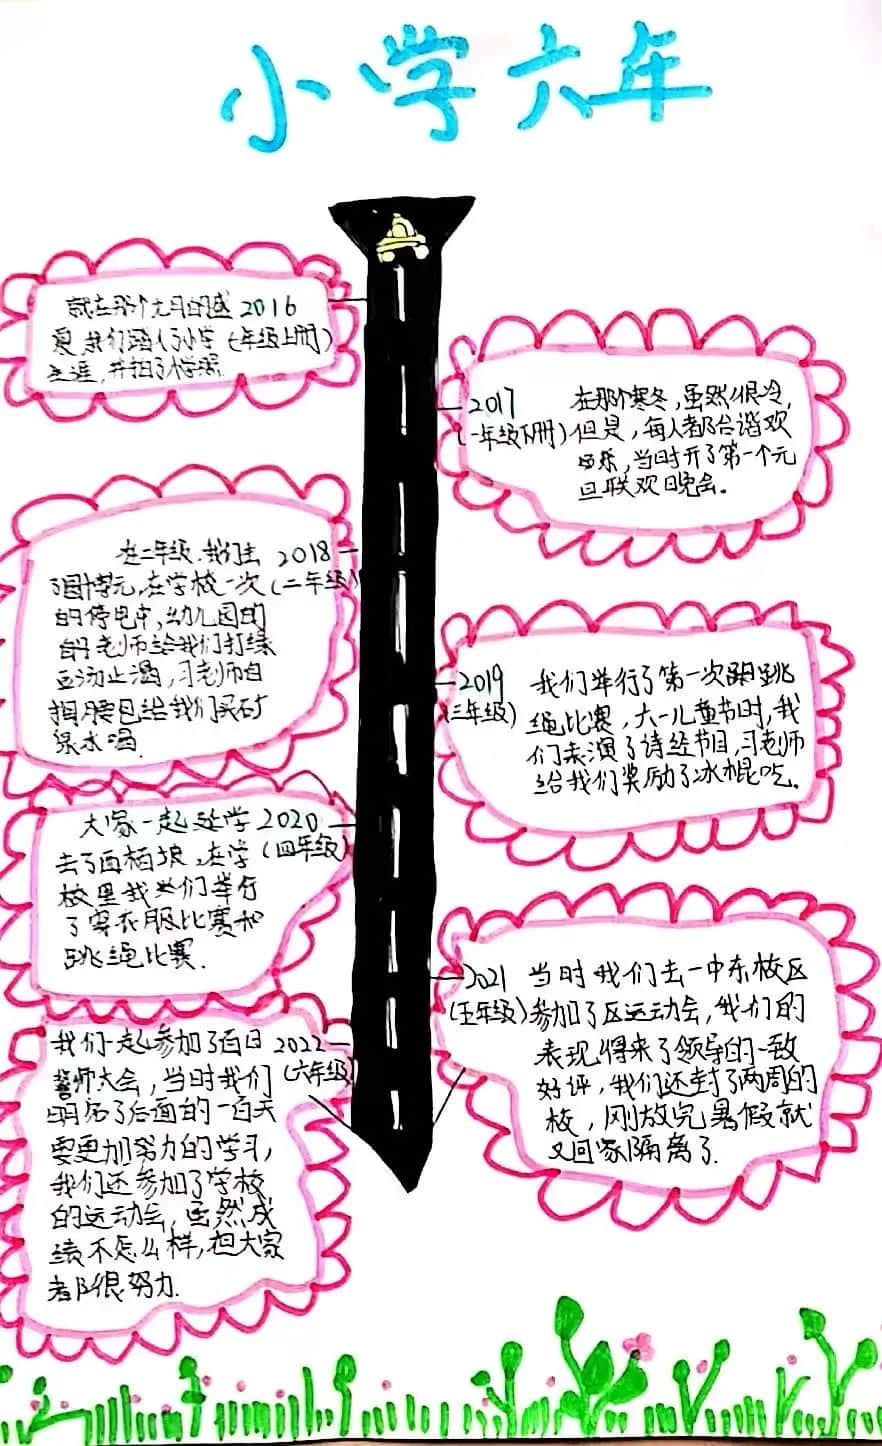 小学六年
就在那个九月的盛 2016
夏,我们踏入了小学 (一年级上册)
生涯,并拍了入学照.
2017 在那个寒冬,虽然很冷,
(一年级下册) 但是,每人都合谐欢
乐,当时开了第一个元
旦联欢晚会。
在二年级.我们去 2018
了园博元,在学校一次 (二年级)
的停电中,幼儿园的
的老师给我们打绿
豆汤止渴,刁老师自
掏腰包给我们买矿
泉水喝.
2019 我们举行了第一次跳
(三年级) 绳比赛,六一儿童节时,我
们表演了诗经节目,刁老师
给我们奖励了冰棍吃.
大家一起研学 2020
去了西柏坡,在学 (四年级)
校里我们举行
了穿衣服比赛和
跳绳比赛.
2021 当时我们去一中东校区
(五年级) 参加了区运动会,我们的
表现得来了领导的一致
好评,我们还封了两周的
校,刚放完暑假就
又回家隔离了.
我们一起参加了百日 2022
誓师大会,当时我们 (六年级)
明后了后面的一百天
要更加努力的学习,
我们还参加了学校
的运动会,虽然成
绩不怎么样,但大家
都很努力.